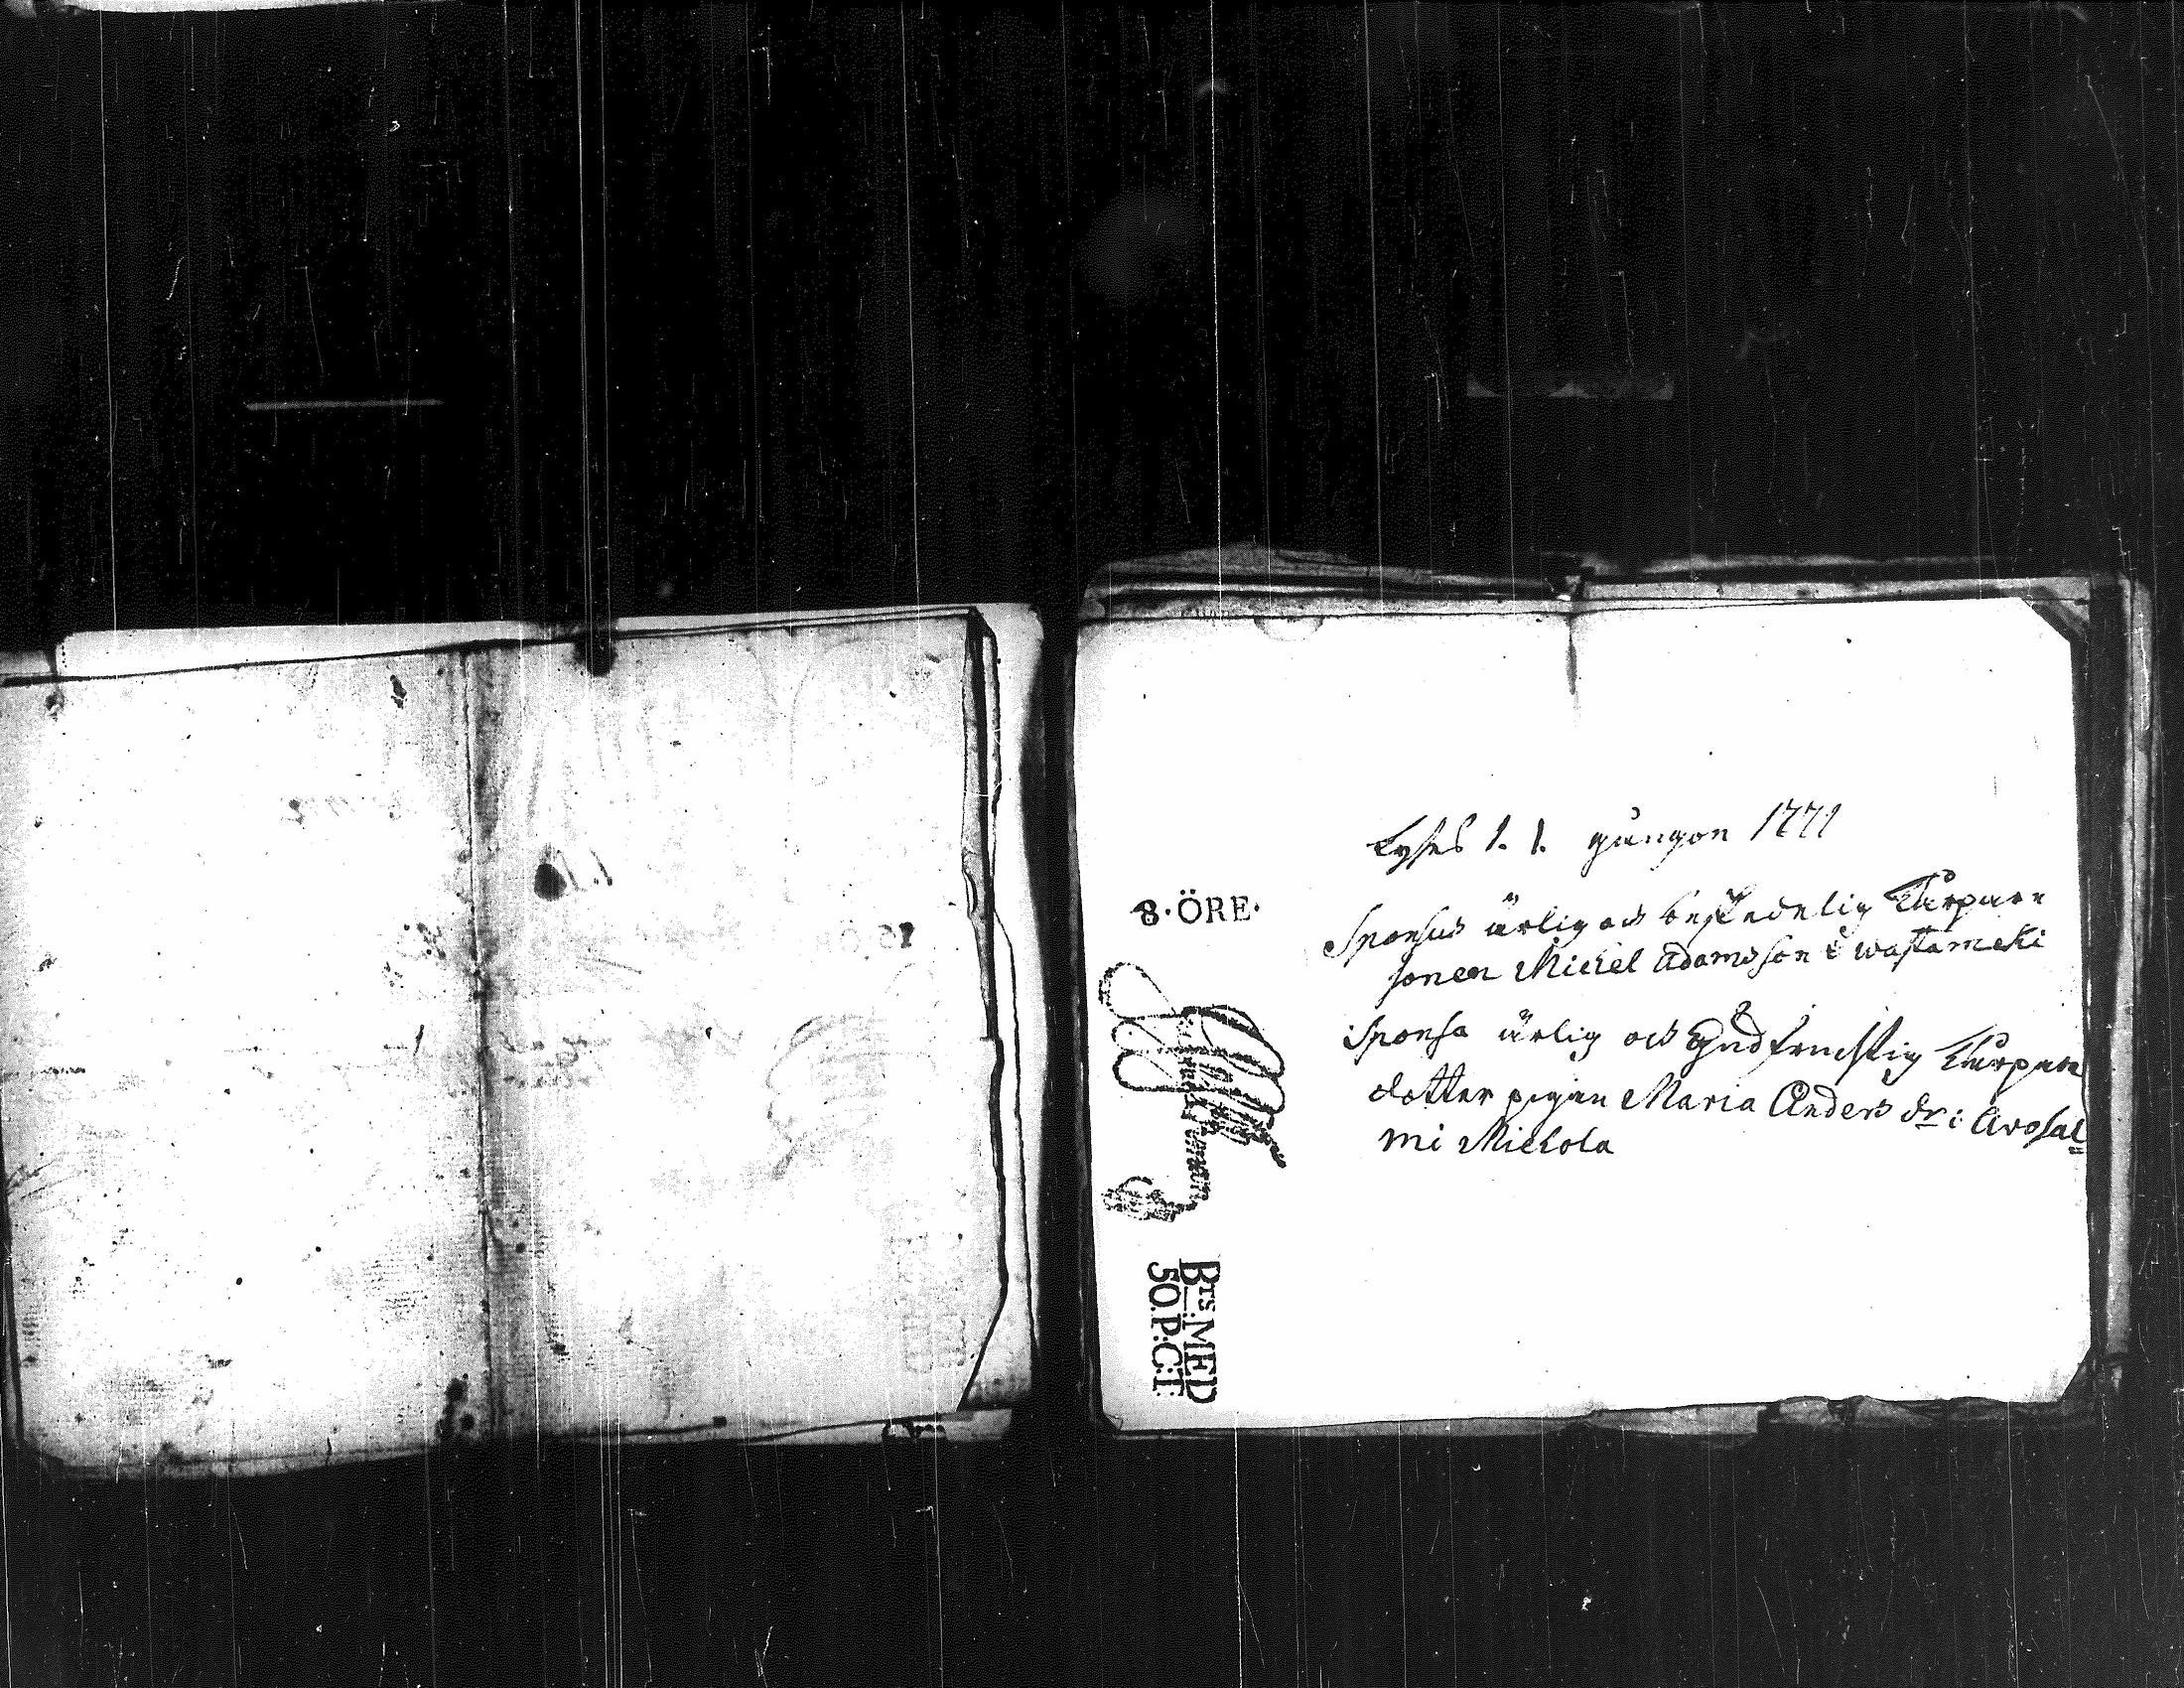 Lyses 1. 1. gången 1771
8·ÖRE·
Sponsus ärlig och beskedelig Torpare
sonen Michel Adamsson i wastameki
Sponsa ärlig och Gudfrucktig Torpare
dotter pigan Maria Anders dr: i Arosal=
mi Michola
Brs MED
50.P:C:T